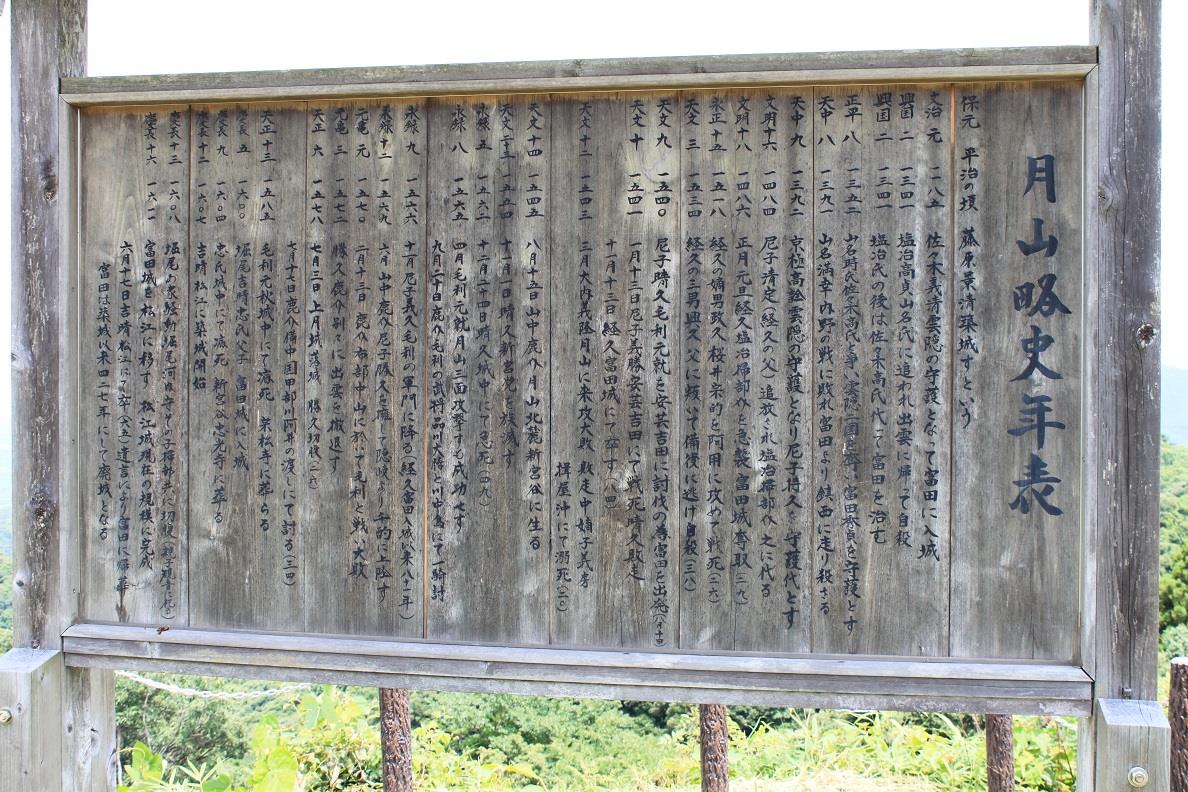 月山略史年表
保元 平治の頃 藤原景清築城すという
文治 元 一一八五 佐々木義清雲隠の守護となって富田に入城
興国 二 一三四一 塩冶高貞山名氏に追われ出雲に帰って自殺
興国 二 一三四一 塩冶氏の後は佐々木高氏代って富田を治む
正平 八 一三五二 山名時氏佐々木高氏と争い雲隠二国を奪い富田秀貞を守護とす
天中 八 一三九一 山名満幸内野の戦に敗れ富田より鎮西に走り殺さる
天中 九 一三九二 京極高詮雲隠の守護となり尼子持久を守護代とす
文明十六 一四八四 尼子清定(経久の父)追放され塩冶掃部介之に代る
文明十八 一四八六 正月元旦経久塩冶掃部介を急襲富田城奪取(二九)
永正十五 一五一八 経久の嫡男政久桜井宗的を阿用に攻めて戦死(二六)
天文 三 一五三四 経久の三男興久父に叛いて備後に逃げ自殺(三八)
天文 九 一五四〇 尼子晴久毛利元就を安芸吉田に討伐の為富田を出発(八月十日)
天文 十 一五四一 一月十三日尼子義勝安芸吉田にて戦死晴久敗走
十一月十三日経久富田城にて卒す(八四)
天文十二 一五四三 三月大内義隆月山に来攻大敗 敗走中嫡子義房
揖屋沖にて溺死(二〇)
天文十四 一五四五 八月十五日山中鹿介月山北麓新宮谷に生る
天文二十三 一五五四 十一月一日晴久新宮党を族滅す
永禄 五 一五六二 十二月二十四日晴久城中にて急死(四九)
永禄 八 一五六五 四月毛利元就月山三面攻撃するも成功せず
九月二十日鹿介毛利の武将品川大膳と川中島にて一騎討
永禄 九 一五六六 十一月尼子義久毛利の軍門に降る(経久富田入城以来八十一年)
永禄十二 一五六九 六月山中鹿介尼子勝久を擁して隠岐より千酌に上陸す
元亀 元 一五七〇 二月十三日 鹿介布部中山に於いて毛利と戦い大敗
元亀 三 一五七二 勝久鹿介別々に出雲を撤退す
天正 六 一五七八 七月三日上月城落城 勝久切腹(二六)
七月十七日鹿介備中国甲部川阿井の渡しにて討る(三四)
天正十三 一五八五 毛利元秋城中にて病死 宗松寺に葬らる
慶長 五 一六〇〇 堀尾吉晴忠氏父子 富田城に入城
慶長 九 一六〇四 忠氏城中にて病死 新宮谷忠光寺に葬る
慶長十二 一六〇七 吉晴松江に築城開始
慶長十三 一六〇八 堀尾お家騒動堀尾河内守その子掃部共に切腹
慶長十六 一六一一 富田城を松江に移す 松江城現在の規模に完成
六月十七日吉晴松江にて卒(六五)遺言により富田に帰葬
富田は築城以来四二七年にして廃城となる